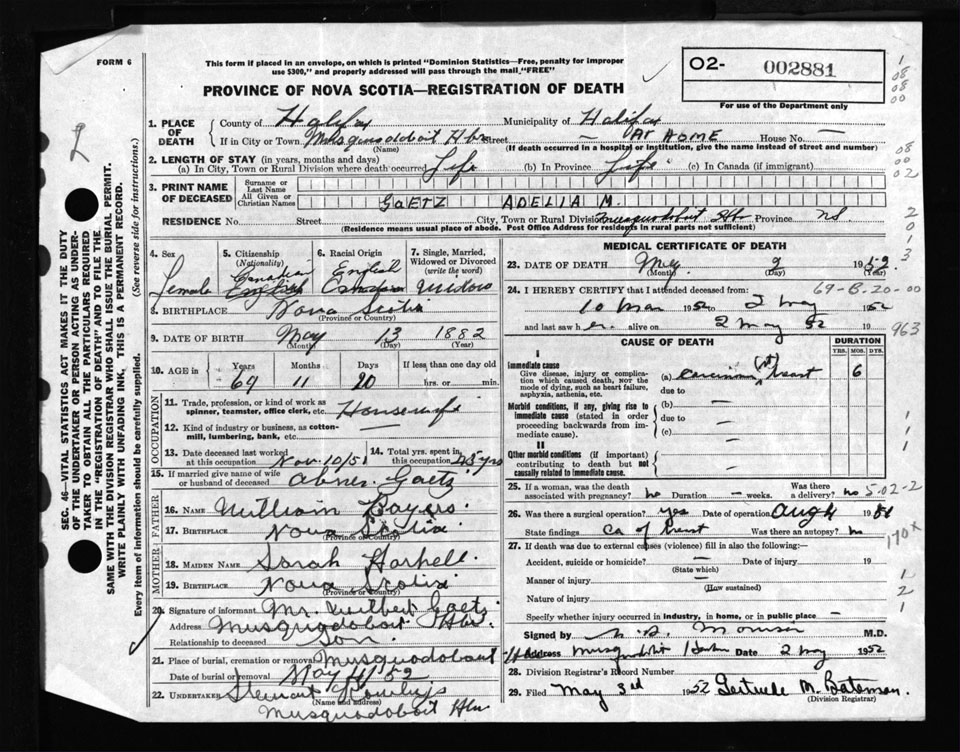 FORM 6
This form if placed in an envelope, on which is printed "Dominion Statistics—Free, penalty for improper
use $300," and properly addressed will pass through the mail "FREE"
PROVINCE OF NOVA SCOTIA—REGISTRATION OF DEATH
O2- 002881
For use of the Department only
1. PLACE OF DEATH
County of Halifax Municipality of Halifax
If in City or Town Musquodoboit Hbr Street — AT HOME House No. —
(Name) (If death occurred in a hospital or institution, give the name instead of street and number)
2. LENGTH OF STAY (in years, months and days)
(a) In City, Town or Rural Division where death occurred Life (b) In Province Life (c) In Canada (if immigrant)
3. PRINT NAME OF DECEASED
Surname or Last Name
All Given or Christian Names GAETZ ADELIA M.
RESIDENCE No. Street City, Town or Rural Division Musquodoboit Hbr Province NS
(Residence means usual place of abode. Post Office Address for residents in rural parts not sufficient)
4. Sex Female
5. Citizenship (Nationality) Canadian English
6. Racial Origin English Canadian
7. Single, Married, Widowed or Divorced (write the word) Widow
8. BIRTHPLACE Nova Scotia
(Province or Country)
9. DATE OF BIRTH May 13 1882
(Month) (Day) (Year)
10. AGE in Years 69 Months 11 Days 20 If less than one day old hrs. or min.
OCCUPATION
11. Trade, profession, or kind of work as
spinner, teamster, office clerk, etc. Housewife
12. Kind of industry or business, as cotton-
mill, lumbering, bank, etc. —
13. Date deceased last worked at this occupation Nov. 10/51 14. Total yrs. spent in this occupation 45 yrs
15. If married give name of wife
or husband of deceased Abner Gaetz
FATHER
16. NAME William Bayers
17. BIRTHPLACE Nova Scotia
(Province or Country)
MOTHER
18. MAIDEN NAME Sarah Harpell
19. BIRTHPLACE Nova Scotia
(Province or Country)
20. Signature of informant Mr. Wilbert Gaetz
Address Musquodoboit Hbr.
Relationship to deceased Son.
21. Place of burial, cremation or removal Musquodoboit
Date of burial or removal May 4/52
22. UNDERTAKER Stewart
(Name and address)
Musquodoboit Hbr
MEDICAL CERTIFICATE OF DEATH
23. DATE OF DEATH May 2 1952
(Month) (Day) (Year)
24. I HEREBY CERTIFY that I attended deceased from: 69-B.20-00
10 Mar 1952 to 2 May 1952
and last saw her alive on 2 May 52 19
CAUSE OF DEATH DURATION
YRS. MOS. DYS.
I
Immediate cause
Give disease, injury or complication which caused death, NOT the mode of dying, such as heart failure, asphyxia, asthenia, etc.
(a) Carcinoma (of) breast 6
due to
Morbid conditions, if any, giving rise to immediate cause (stated in order proceeding backwards from immediate cause).
(b) —
due to —
(c) —
II
Other morbid conditions (if important) contributing to death but not causally related to immediate cause.
25. If a woman, was the death associated with pregnancy? no Duration — weeks. Was there a delivery? no
26. Was there a surgical operation? yes Date of operation Aug 4 1951
State findings Ca of Breast Was there an autopsy? no
27. If death was due to external causes (violence) fill in also the following:—
Accident, suicide or homicide? — Date of injury 19
(State which)
Manner of injury —
(How sustained)
Nature of injury
Specify whether injury occurred in industry, in home, or in public place —
Signed by Morrison M.D.
Address Musquodoboit Harbor Date 2 May 1952
28. Division Registrar's Record Number
29. Filed May 3rd 1952 Gertrude M. Bateman.
(Division Registrar)
SEC. 46—VITAL STATISTICS ACT MAKES IT THE DUTY
OF THE UNDERTAKER OR PERSON ACTING AS UNDER-
TAKER TO OBTAIN ALL THE PARTICULARS REQUIRED
IN THE "REGISTRATION OF DEATH" AND TO FILE THE
SAME WITH THE DIVISION REGISTRAR WHO SHALL ISSUE THE BURIAL PERMIT.
WRITE PLAINLY WITH UNFADING INK, THIS IS A PERMANENT RECORD.
Every item of information should be carefully supplied. (See reverse side for instructions.)
1
08
08
00
08
00
02
2
0
1
3
963
1
1
1
5-02-2
170x
1
2
1